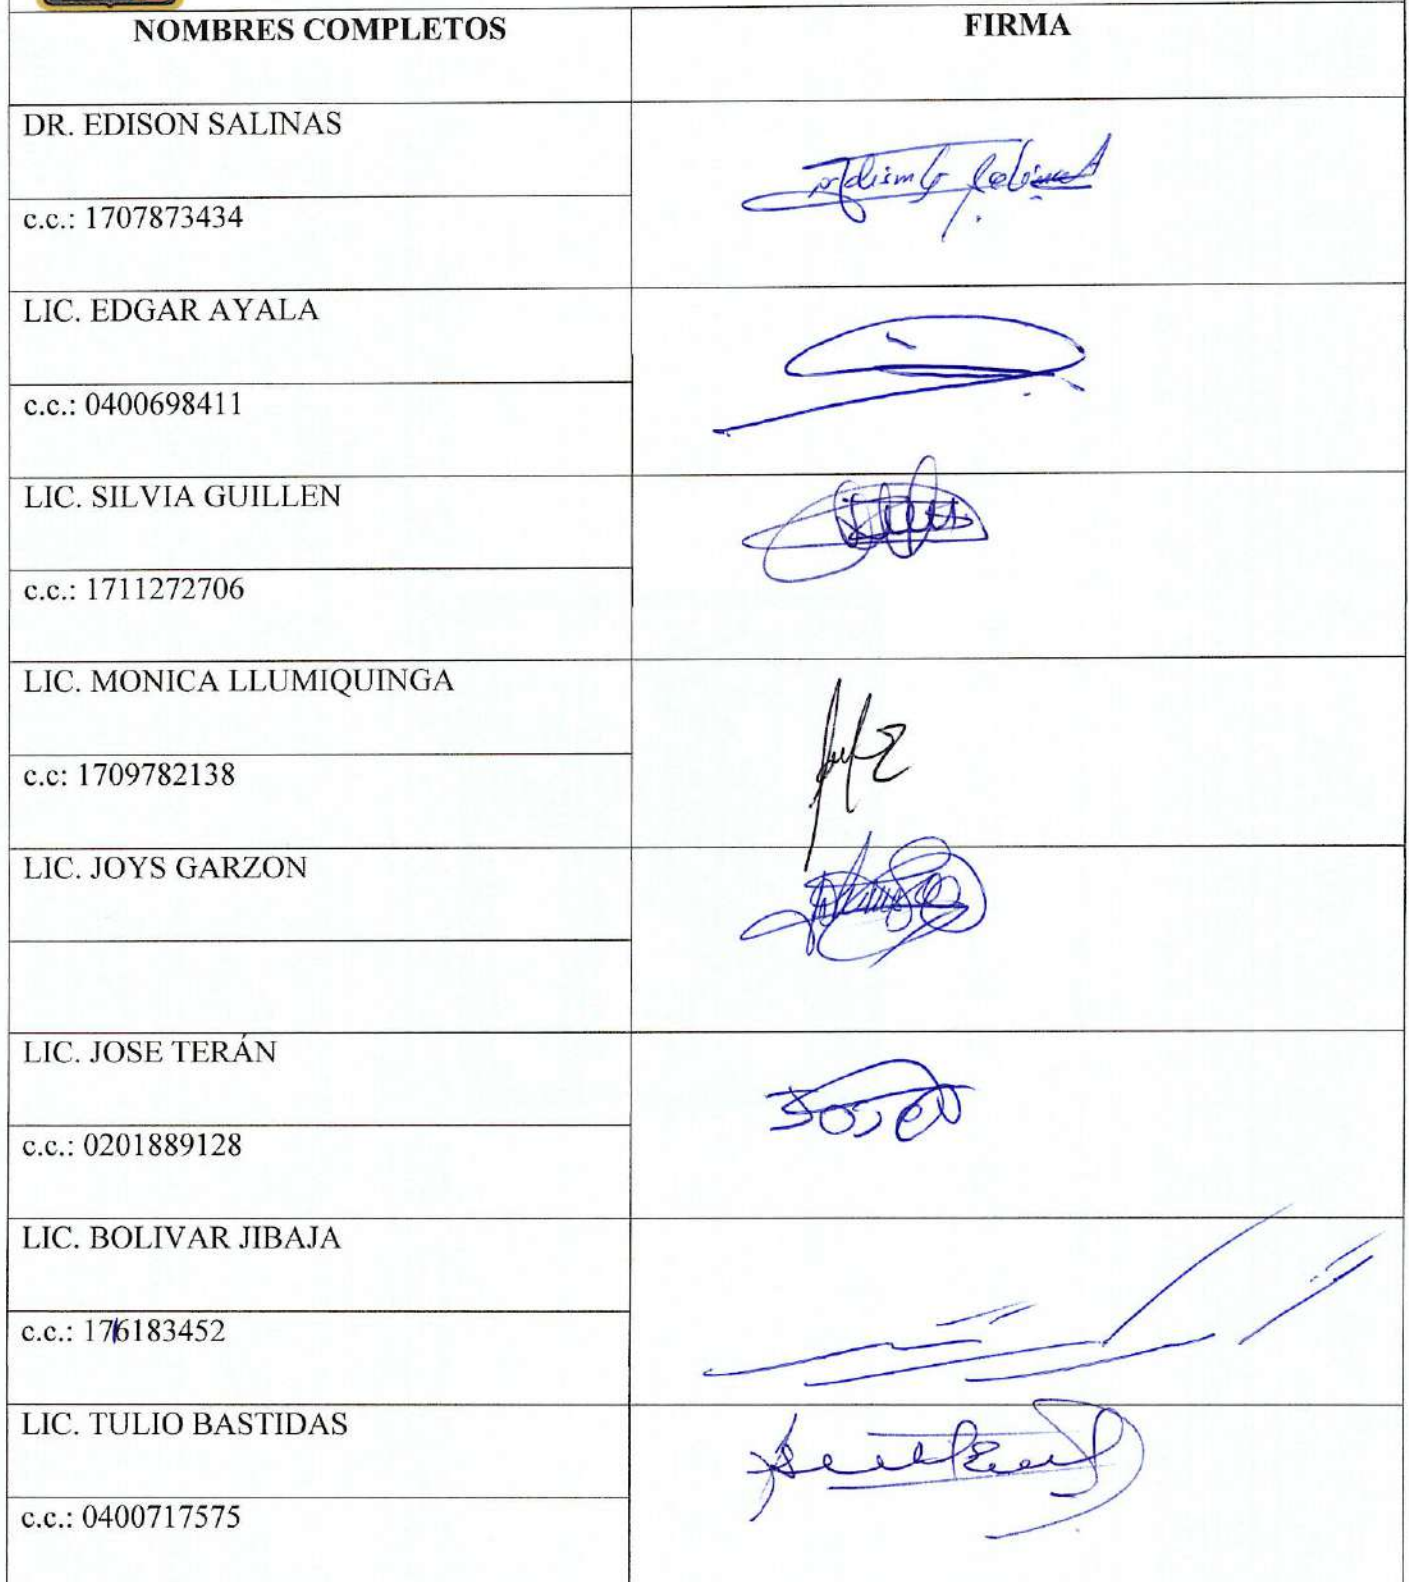 NOMBRES COMPLETOS FIRMA
DR. EDISON SALINAS
c.c.: 1707873434
LIC. EDGAR AYALA
c.c.: 0400698411
LIC. SILVIA GUILLEN
c.c.: 1711272706
LIC. MONICA LLUMIQUINGA
c.c: 1709782138
LIC. JOYS GARZON
LIC. JOSE TERÁN
c.c.: 0201889128
LIC. BOLIVAR JIBAJA
c.c.: 1716183452
LIC. TULIO BASTIDAS
c.c.: 0400717575